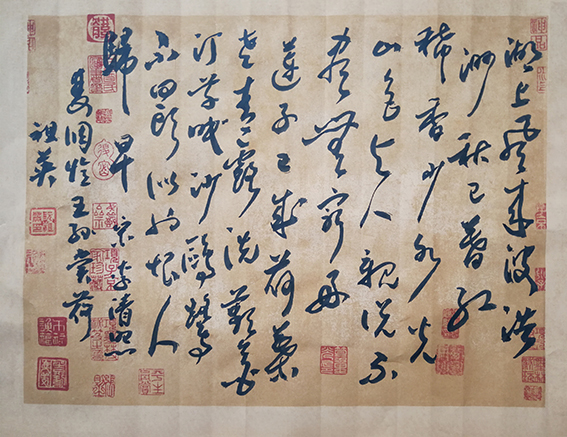 湖上風來波浩
渺秋已暮紅
稀香少水光
山色与人親說不
盡無窮好
蓮子已成荷葉
老青露洗蘋花
汀草眠沙鷗鷺
不回頭似也恨人
歸早 宋李清照
雙調憶王孫賞荷
祖英